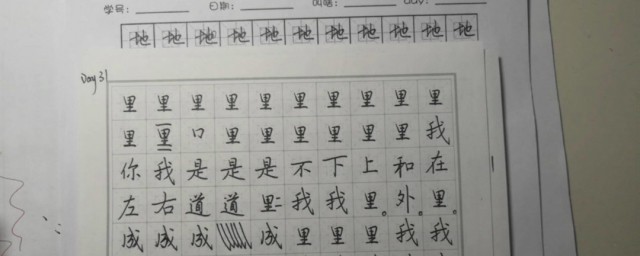 学号： 日期：
地地地地地地地地地地
Day 31
里里里里里里里里里里
里里口里里里里里里我
你我是是是不下上和在
左右道道里我我里。外。里。
成成成成里里里我我